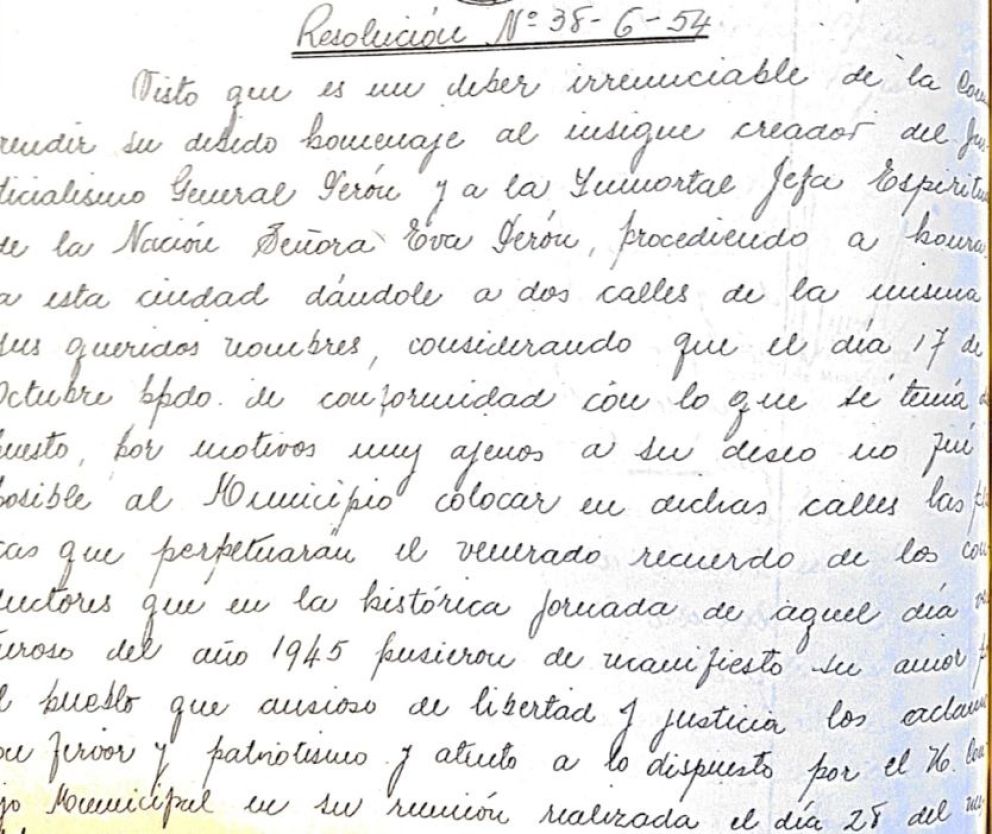 Resolución Nº 38-6-54
Visto que es un deber irrenunciable de la Com
rendir su debido homenaje al insigne creador del Jus
ticialismo General Perón y a la Inmortal Jefa Espiritu
de la Nación Señora Eva Perón, procediendo a honra
a esta ciudad dándole a dos calles de la misma
sus queridos nombres, considerando que el día 17 de
Octubre ppdo. de conformidad con lo que se tenía
puesto, por motivos muy ajenos a su deseo no fué
posible al Municipio colocar en dichas calles las
cas que perpetuarán el venerado recuerdo de los con
ductores que en la histórica jornada de aquel día
turoso del año 1945 pusieron de manifiesto su amor p
l pueblo que ansioso de libertad y justicia los aclama
on fervor y patriotismo y atento a lo dispuesto por el H. Con
jo Municipal en su reunión realizada el día 28 del